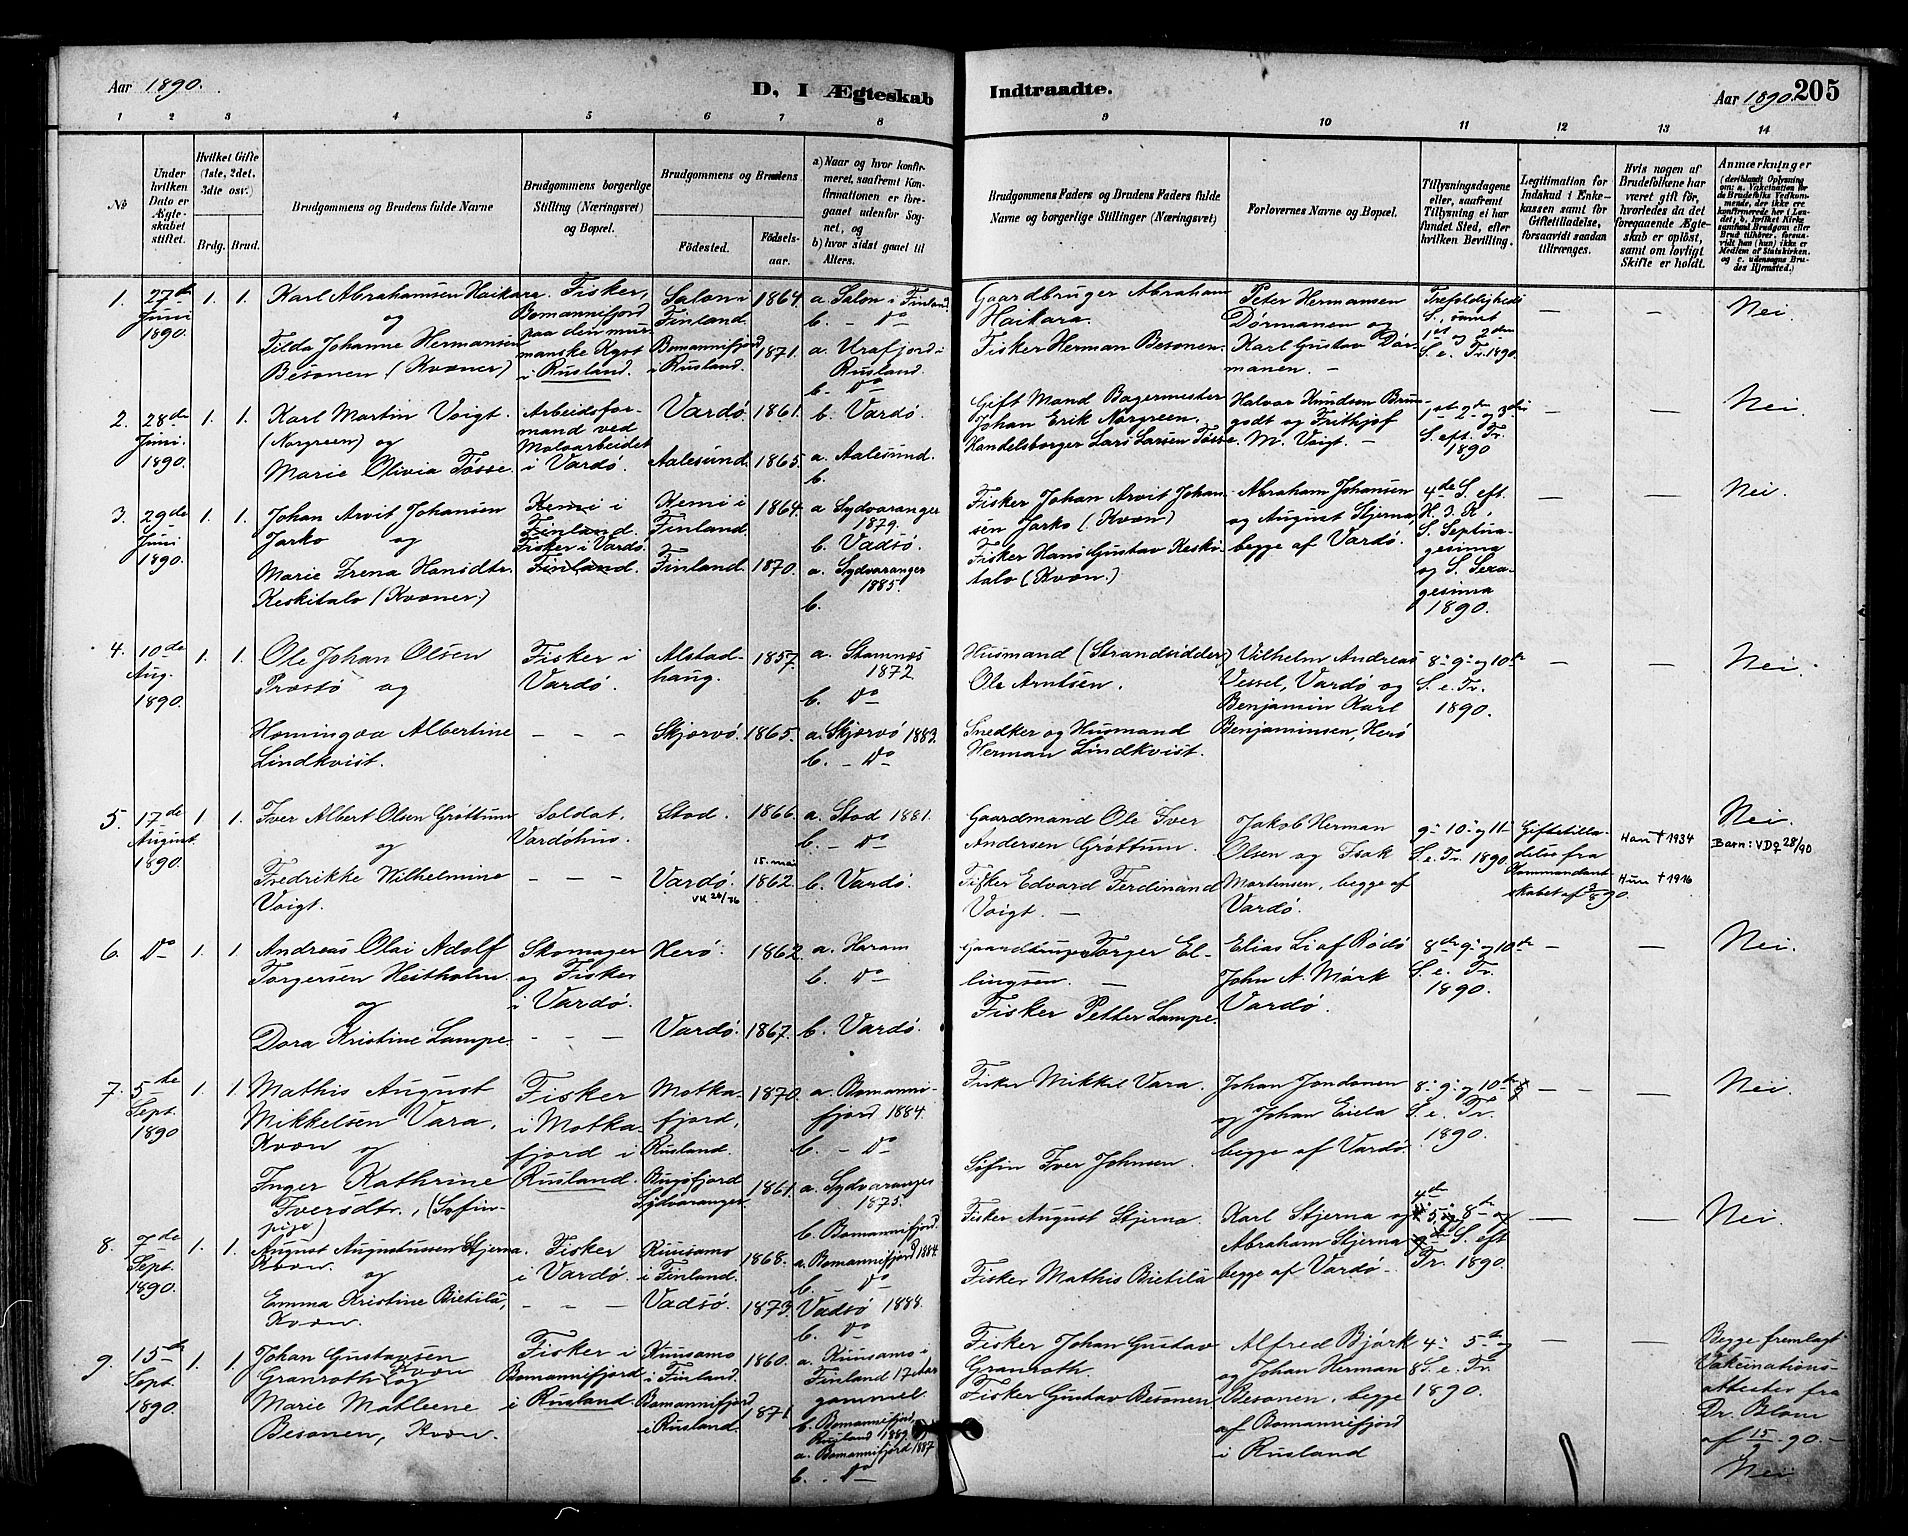 Aar 1890.
D, I Ægteskab
Indtraadte.
Aar 1890. 205
1 2 3 4 5 6 7 8 9 10 11 12 13 14
No
Under hvilken Dato er Ægteskabet stiftet.
Hvilket Gifte (1ste, 2det, 3die osv.)
Brdg. Brud.
Brudgommens og Brudens fulde Navne
Brudgommens borgerlige Stilling (Næringsvei) og Bopæl.
Brudgommens og Brudens
Fødested.
Fødselsaar.
a) Naar og hvor konfirmeret, saafremt Konfirmationen er foregaaet udenfor Sognet, og
b) hvor sidst gaaet til Alters.
Brudgommens Faders og Brudens Faders fulde Navne og borgerlige Stillinger (Næringsvei)
Forlovernes Navne og Bopæl.
Tillysningsdagene eller, saafremt Tillysning ei har fundet Sted, efter hvilken Bevilling.
Legitimation for Indskud i Enkekassen samt for Giftetilladelse, forsaavidt saadan tiltrænges.
Hvis nogen af Brudefolkene har været gift før, hvorledes da det foregaaende Ægteskab er opløst, samt om lovligt Skifte er holdt.
Anmærkninger (deriblandt Oplysning om: a. Vakcination for de Brudefolks Vedkommende, der ikke ere konfirmerede her i Landet; b. hvilket Kirkesamfund Brudgom eller Brud tilhører, forsaavidt han (hun) ikke er Medlem af Statskirken. og c. udensogns Brudes Hjemsted.)
1. 27de Juni 1890. 1. 1.
Karl Abrahamsen Haikara.
og
Tilda Johanne Hermansen
Besonen. (Kvæner)
Fisker,
Bomannefjord
paa den murmanske Kyst
i Rusland.
Salon i Finland. 1864.
Bomannefjord i Rusland. 1871.
a. Salon i Finland.
b. – Do
a. Urafjord i Rusland.
b. Do
Gaardbruger Abraham
Haikara.
Fisker Herman Besonen.
Peter Hermansen
Dørmanen og
Karl Gustav Dørmanen. –
Trefoldigheds
S., samt
1st og 2den
S. e. Tr. 1890.
– – Nei.
2. 28de Juni. 1890. 1. 1.
Karl Martin Voigt.
(Norgreen) og
Marie Olivia Tøsse.
Arbeidsformand ved
Moloarbeidet
i Vardø.
Vardø 1861.
Aalesund. 1865.
b. Vardø.
a. Aalesund.
b.
Gift Mand Bagermester
Johan Erik Norgreen.
Handelsborger Lars Larsen Tøsse.
Halvor Knudsen Brungodt og Frithjof
M. Voigt. –
1st 2den og 3die
S. eft. Tr.
1890
– – Nei.
3. 29de Juni 1890. 1. 1.
Johan Arvit Johansen
Jarko og
Marie Irena Hansdtr.
Keskitalo (Kvæner.)
Kemi i
Finland.
Fisker i Vardø.
Finland.
Kemi i Finland. 1864.
Finland. 1870.
a Sydvaranger 1879.
b. Vadsø.
a. Sydvaranger 1885.
b.
Fisker Johan Arvit Johansen Jarko (Kvæn)
Fisker Hans Gustav Keskitalo (Kvæn.)
Abraham Johansen
og August Stjerna,
begge af Vardø.
4de S. eft.
H. 3. K.,
S. Septuagesima
og S. Sexagesima
1890.
– – Nei
4. 10de Aug. 1890. 1. 1.
Ole Johan Olsen
Præstø og
Homingaa Albertine
Lindkvist.
Fisker i
Vardø.
– – –
Alstadhaug. 1857.
Skjervø. 1865.
a. Stamnæs 1872
b. Do
a. Skjervø 1883.
b. – Do
Husmand (Strandsidder)
Ole Arntsen.
Snedker og Husmand
Herman Lindkvist.
Vilhelm Andreas
Vessel, Vardø og
Benjamin Karl
Benjaminsen, Herø
8– 9– og 10de
S. e. Tr.
1890.
– – Nei.
5. 17de August 1890. 1 1.
Iver Albert Olsen Grøttum
og
Fredrikke Wilhelmine
Voigt.
Soldat,
Vardøhus.
– – –
Stod. 1866.
Vardø. 15. mai 1862.
VK 26/76
a. Stod 1881.
b. – Do
b. Vardø.
Gaardmand Ole Iver
Andersen Grøttum.
Fisker Edvard Ferdinand
Voigt. –
Jakob Herman
Olsen og Isak
Mortensen, begge af
Vardø.
9– 10– og 11–
S. e. Tr. 1890.
Giftetilladelse fra
Kommandantskabet af 2/8 90.
Han † 1934
Hun † 1916
Nei.
Barn: VD♀ 28/90
6. Do 1. 1.
Andreas Olai Adolf
Torgersen Heitholm.
og
Dora Kristine Lampe.
Skomager
og Fisker
i Vardø.
– – –
Herø. 1862.
Vardø. 1867.
a. Haram
b. Do
b. Vardø.
Torger Ellingsen. –
Fisker Petter Lampe.
Elias Li af Rødø
John A. Mørk
Vardø.
8de 9– og 10de
S. e. Tr.
1890.
– – Nei.
7. 5te Sept. 1890 1. 1.
Mathis August
Mikkelsen Vara,
Kvæn og
Inger Kathrine
Iversdtr., (Søfinpige)
Fisker
i Motkafjord i
Rusland.
Motkafjord, Rusland. 1870.
Bugøfjord Sydvaranger. 1861.
a. Bomannifjord 1884.
b. – Do
a. Sydvaranger 1875.
b. Bomannifjord.
Fisker Mikkel Vara.
Søfin Iver Johnsen.
Johan Jondonen
og Johan Eiela
begge af Vardø.
8– 9– og 10de
S. e. Tr.
1890.
– – Nei.
8. 7de Sept. 1890. 1. 1.
August Augustussen Stjerna,
Kvæn. og
Emma Kristine Bietilä,
Kvæn.
Fisker
i Vardø.
– – –
Kuusamo i Finland. 1868.
Vadsø. 1873.
a. Bomannifjord 1884.
b. – Do
Vadsø 1888.
b. Do
Fisker August Stjerna.
Fisker Mathis Bietilä
Karl Stjerna og
Abraham Stjerna
begge af Vardø.
4de 5– 8de og
9de S. eft
Tr. 1890.
– – Nei.
9. 15de Sept. 1890 1. 1.
Johan Gustavsen
Granroth, Kvæn og
Marie Mathlene
Besonen, Kvæn.
Fisker i
Bomannifjord
i Rusland.
Kuusamo i Finland. 1860.
Bomannifjord i Rusland. 1871.
a. Kuusamo i
Finland 17 Aar
gammel
b. Bomannifjord,
Rusland 1889.
a. Bomannifjord 1887
b. Do
Fisker Johan Gustav
Granroth.
Fisker Gustav Besonen
Alfred Bjørk
og Johan Herman
Besonen, begge
af Bomannifjord
i Rusland
4– 5te og
8 S. e. Tr.
1890.
– –
Begge fremlagt
Vakcinationsattester fra
Dr. Blom
af 15/9 90. –
Nei